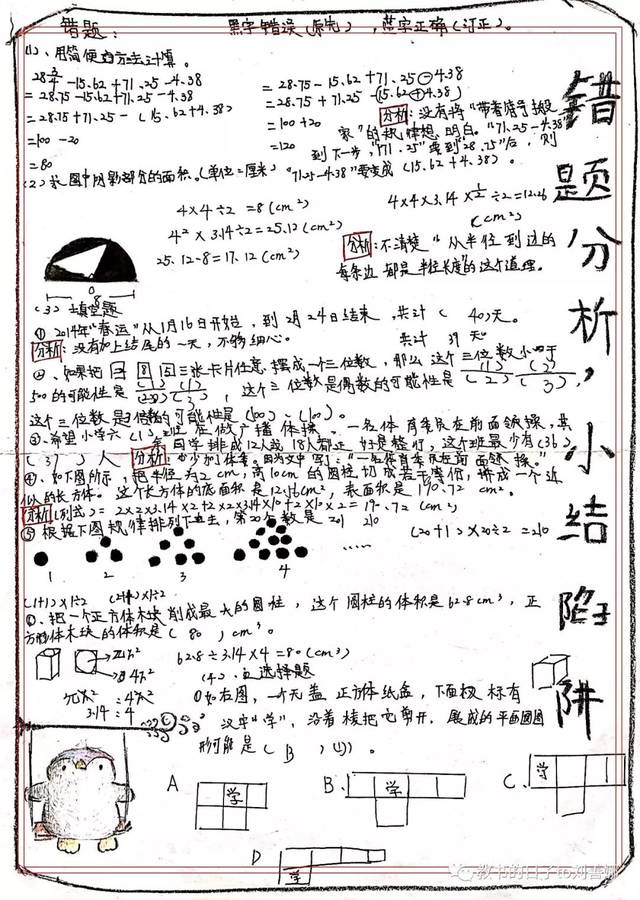 错题： 黑字错误(原先)，蓝字正确(订正)。
(1)、用简便的方法计算。
28¾-15.62+71.25-4.38
=28.75-15.62+71.25-4.38
=28.75+71.25-(15.62+4.38)
=100-20
=80
=28.75-15.62+71.25-4.38
=28.75+71.25-(15.62+4.38)
=100+20
=120
分析:没有将"带着符号搬
家"的规律想明白。"71.25-4.38"
到下一步,"71.25"搬到"28.75"后,则
"71.25-4.38"要变成(15.62+4.38)。
(2)求图中阴影部分的面积。(单位=厘米)
4×4÷2=8(cm²)
4²×3.14÷2=25.12(cm²)
25.12-8=17.12(cm²)
4×4×3.14×½÷2=12.26
(cm²)
分析:不清楚"从半径到边的
每条边都是半径长度"的这个道理。
0
8
(3)填空题
①2014年"春运"从1月16日开始,到2月24日结束,共计( 40)天。
分析:没有加上结尾的一天,不够细心。 共计 39 天
②、如果把 8 三张卡片任意摆成一个三位数,那么这个三位数小于
500的可能性是 ,这个三位数是偶数的可能性是
这个三位数是 的可能性是
③、希望小学六(1)班在做广播体操。一名体育委员在前面领操,其
余同学排成12人或18人都正好是整行,这个班最少有(36)
(37)人 分析:少加1体委。因为文中写了:"一名体育委员在前面领操。"
④、如下图所示,把半径为2cm,高10cm的圆柱切成若干等份,拼成一个近
似的长方体。这个长方体的底面积是12.56cm²,表面积是190.72cm²。
分析(列式)=2×2×3.14×2+2×2×3.14×10+2×10×2=190.72(cm²)
⑤根据下图规律排列下去,第20个数是 201 210
(20+1)×20÷2=210
1 2 3 4 ……
(1+1)×1÷2
⑥、把一个正方体木块削成最大的圆柱,这个圆柱的体积是62.8cm³,正
方体木块的体积是( 80 )cm³。
62.8÷3.14×4=80(cm³)
3.14:4
(4)、选择题
①如右图,一个无盖正方体纸盒,下面板标有
汉字"学",沿着棱把它剪开,展成的平面图
形可能是( B )。
A 学
B. 学
C. 学
D 学
错题分析,小结陷阱
教书的日子to刘善娜